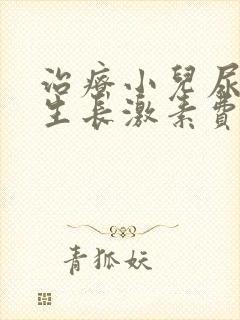 治療小兒尿
生長激素費
青狐妖